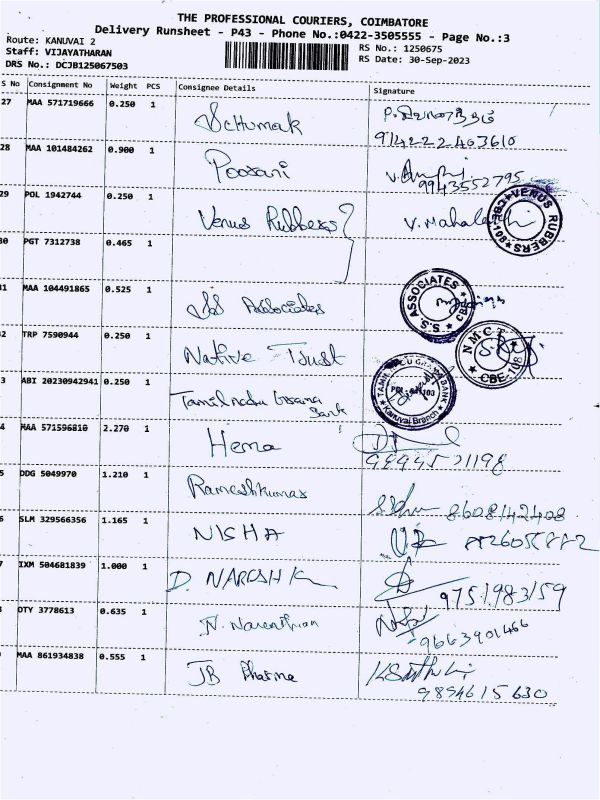 THE PROFESSIONAL COURIERS, COIMBATORE
Delivery Runsheet - P43 - Phone No.:0422-3505555 - Page No.:3
Route: KANUVAI 2
RS No.: 1250675
Staff: VIJAYATHARAN
RS Date: 30-Sep-2023
DRS No.: DCJB125067503
S No Consignment No Weight PCS Consignee Details Signature
27 MAA 571719666 0.250 1 Schumak
28 MAA 101484262 0.900 1 Poosani
9943552795
29 POL 1942744 0.250 1 Venus Rubbers V. Mahalakshmi
VENUS RUBBERS
30 PGT 7312738 0.465 1
31 MAA 104491865 0.525 1 SS Associates
S.S. ASSOCIATES
32 TRP 7590944 0.250 1 Native Trust
NMCT CBE-108
3 ABI 20230942941 0.250 1 Tamilnadu Grama Bank
TAMIL NADU GRAMA BANK
Kanuvai Branch
4 MAA 571596810 2.270 1 Hema
5 DDG 5049970 1.210 1 Rameshkumar
8608142408
6 SLM 329566356 1.165 1 NISHA
7 IXM 504681839 1.000 1 D. NARESH K
9751983159
OTY 3778613 0.635 1 N. Narenthiran
9663901466
MAA 861934838 0.555 1 JB Pharma
9894615630